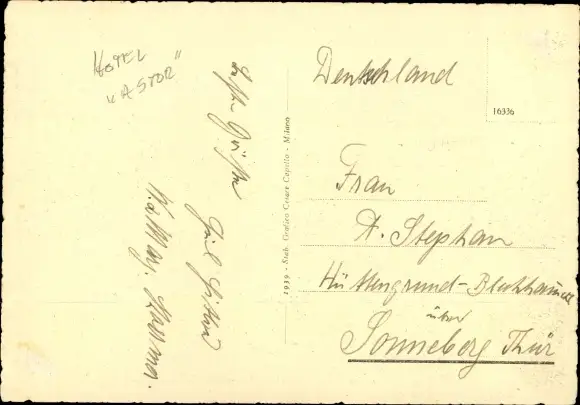 HOTEL
"ASTOR"
Beste Grüße
1939 - Stab. Grafico Cesare Capello - Milano
Deutschland
16336
Frau
A. Stephan
Hüttengrund-Blechhammer
über
Sonneberg Thür